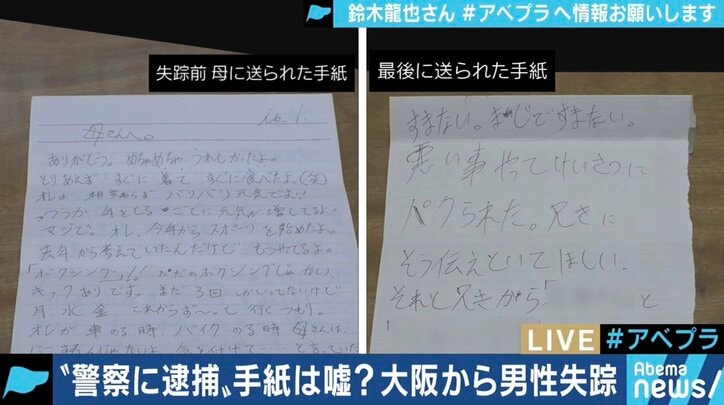 鈴木龍也さん #アベプラ へ情報お願いします
失踪前 母に送られた手紙
最後に送られた手紙
10.1.
母さんへ。
ありがとう。めちゃめちゃ うれしかったよ。
とりあえず すぐに 着て すぐに食べたよ。(笑)
オレは 相変わらず バリバリ元気でよ!!
っつうか 年をとるごとに元気が増してるよ
マジで。オレ、今年からスポーツを始めたよ。
去年から考えていたんだけど もうやってるよ。
「ボクシング」 ただのボクシングじゃない
キックありです。まだ3回しかいってないけど
月 水 金 これからず〜っと 行くつもり。
オレが 車のる時、バイク のる時 母さんは、
気を付けて と言っていた
すまない。まじですまない。
悪い事やってけいさつに
パクられた。兄きに
そう伝えといてほしい。
それと兄きから「
と
LIVE
#アベプラ
“警察に逮捕”手紙は嘘?大阪から男性失踪
Abema
news/